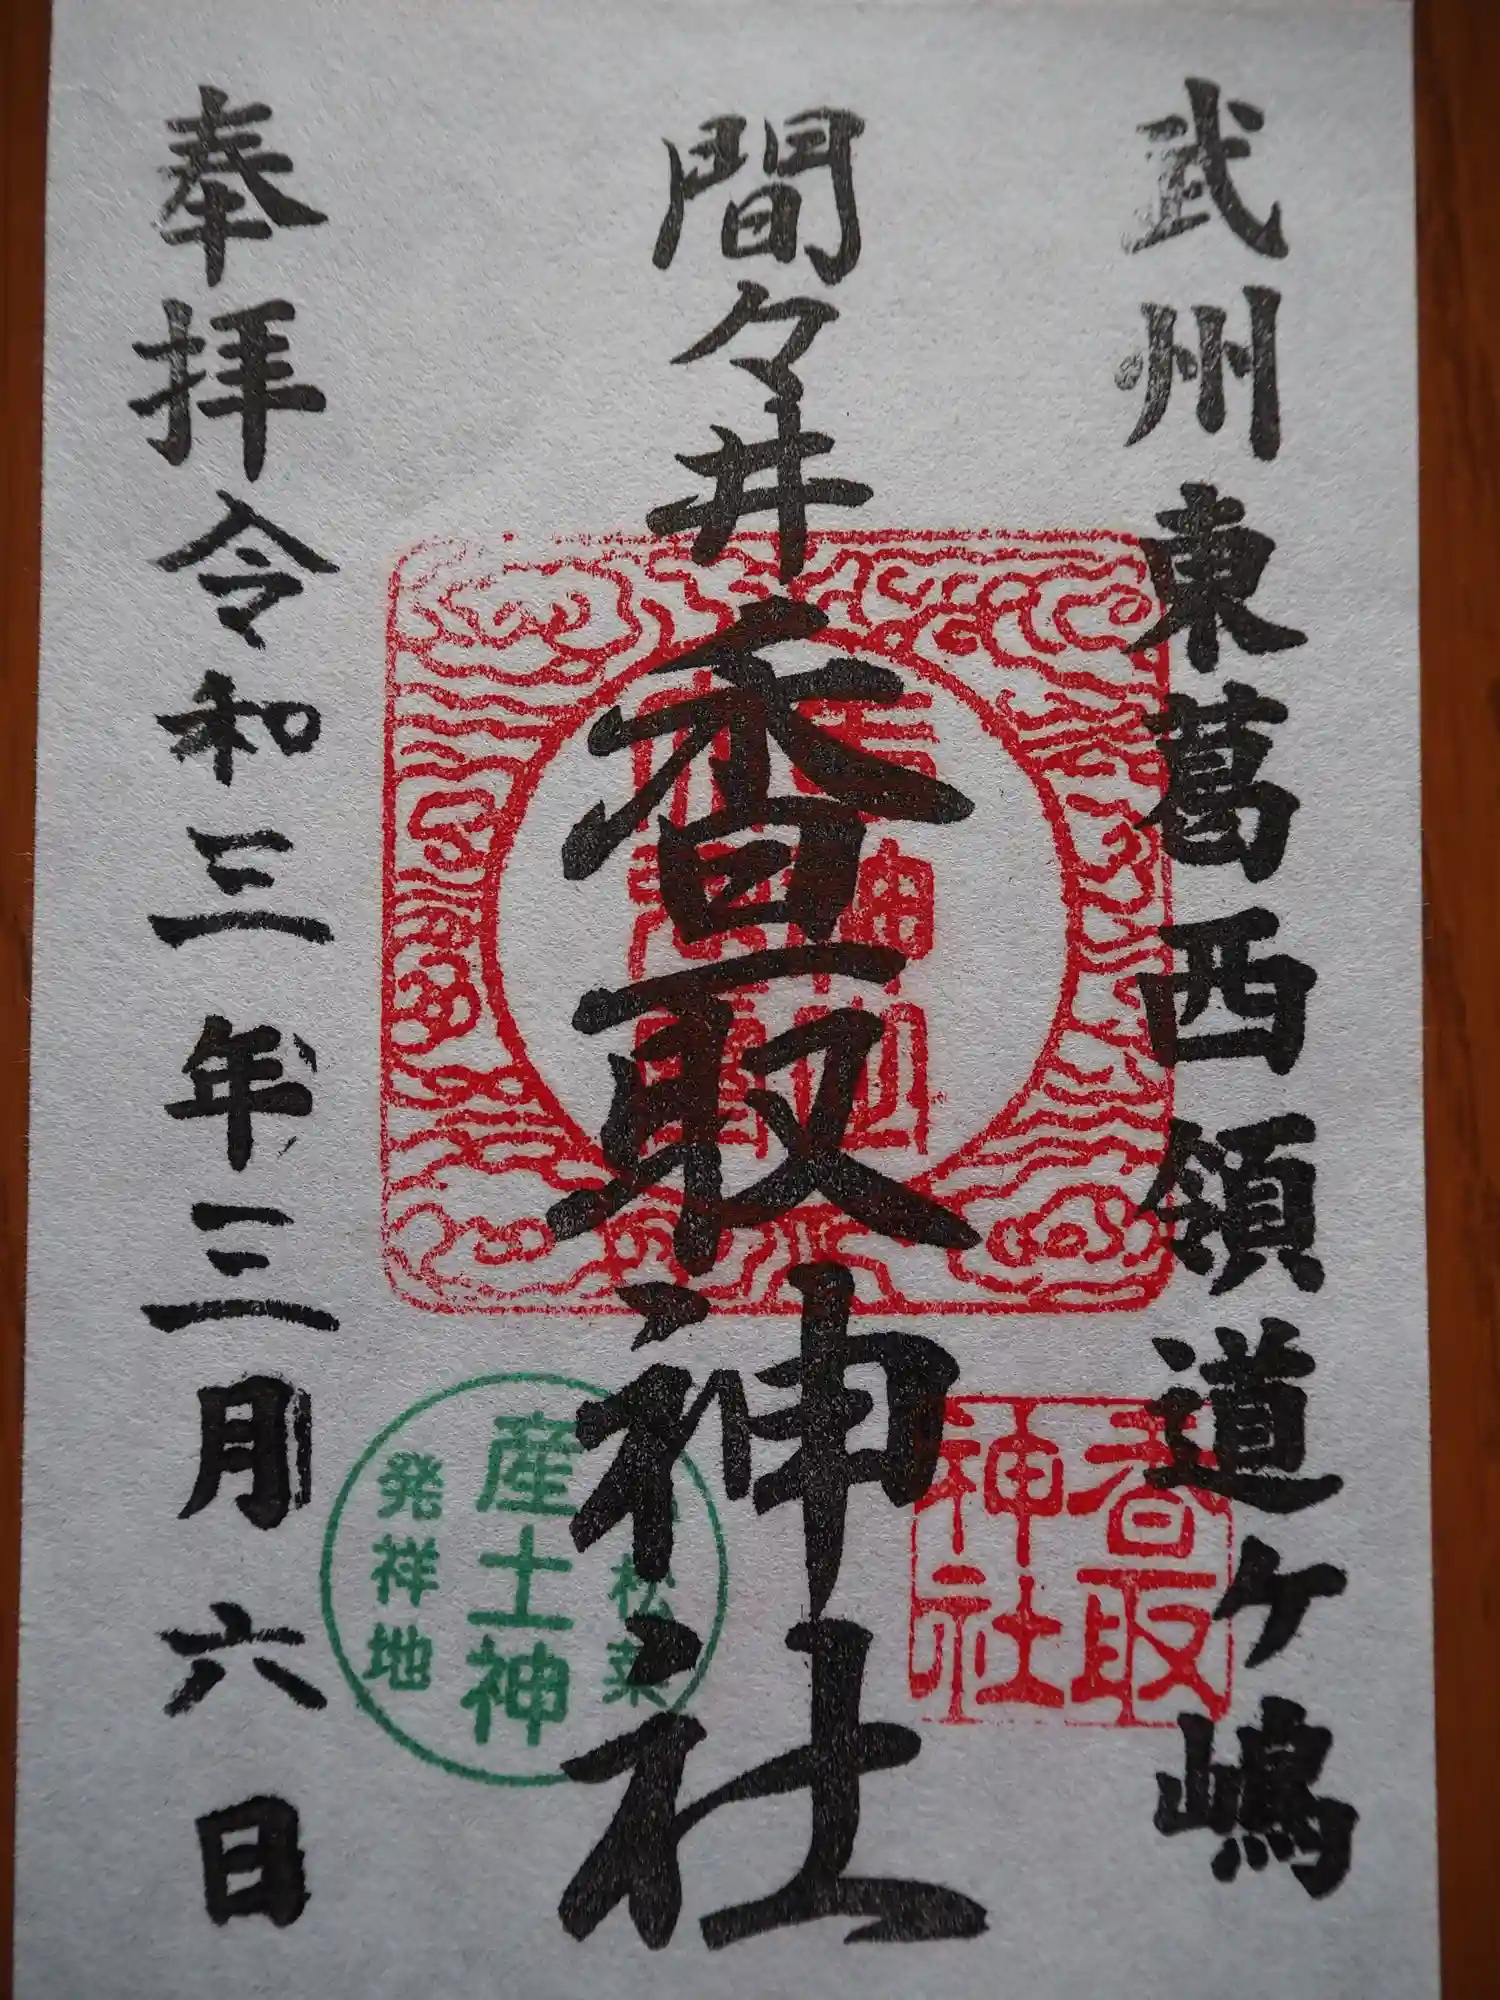 武州東葛西領道ヶ嶋
間々井香取神社
奉拝令和三年三月六日
香取
神社
松菜
産土神
発祥地